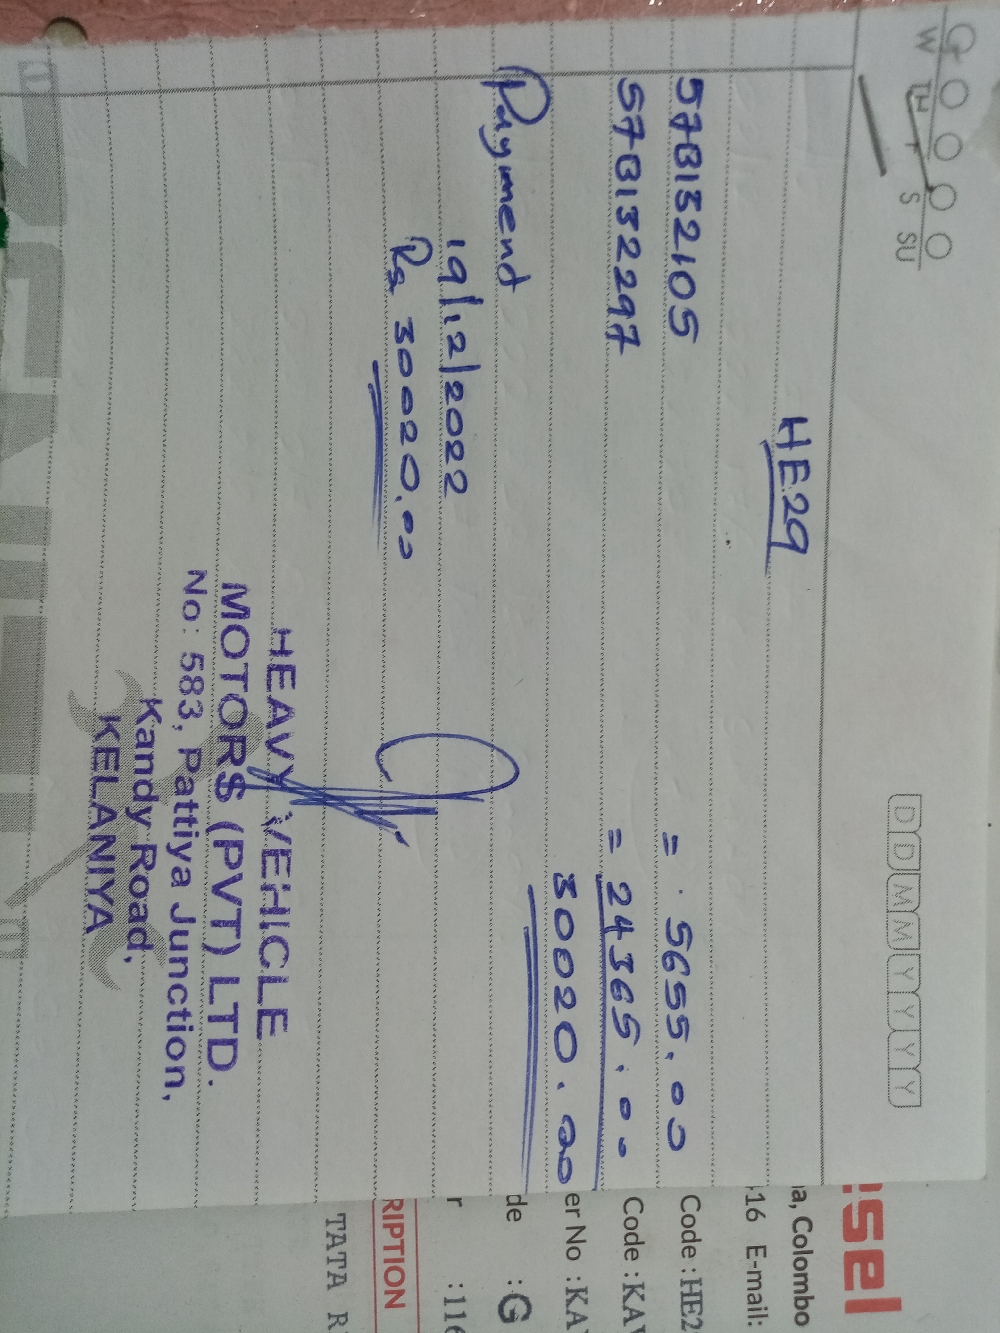 W TH F S SU
D D M M Y Y Y Y
HE29
57B132105 = 5655.00
57B132297 = 24365.00
30020.00
Paymend
19/12/2022
Rs 30020.00
HEAVY VEHICLE
MOTORS (PVT) LTD.
No: 583, Pattiya Junction,
Kandy Road,
KELANIYA
isel
a, Colombo
16 E-mail:
Code : HE2
Code : KAV
er No : KAV
de : G
r : 116
RIPTION
TATA R